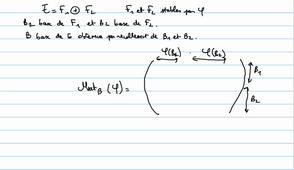 E = F₁ ⊕ F₂ F₁ et F₂ stables par φ
B₁ base de F₁ et B₂ base de F₂.
B base de E obtenue par recollement de B₁ et B₂.
φ(B₁) φ(B₂)
Mat_B (φ) =
B₁
B₂